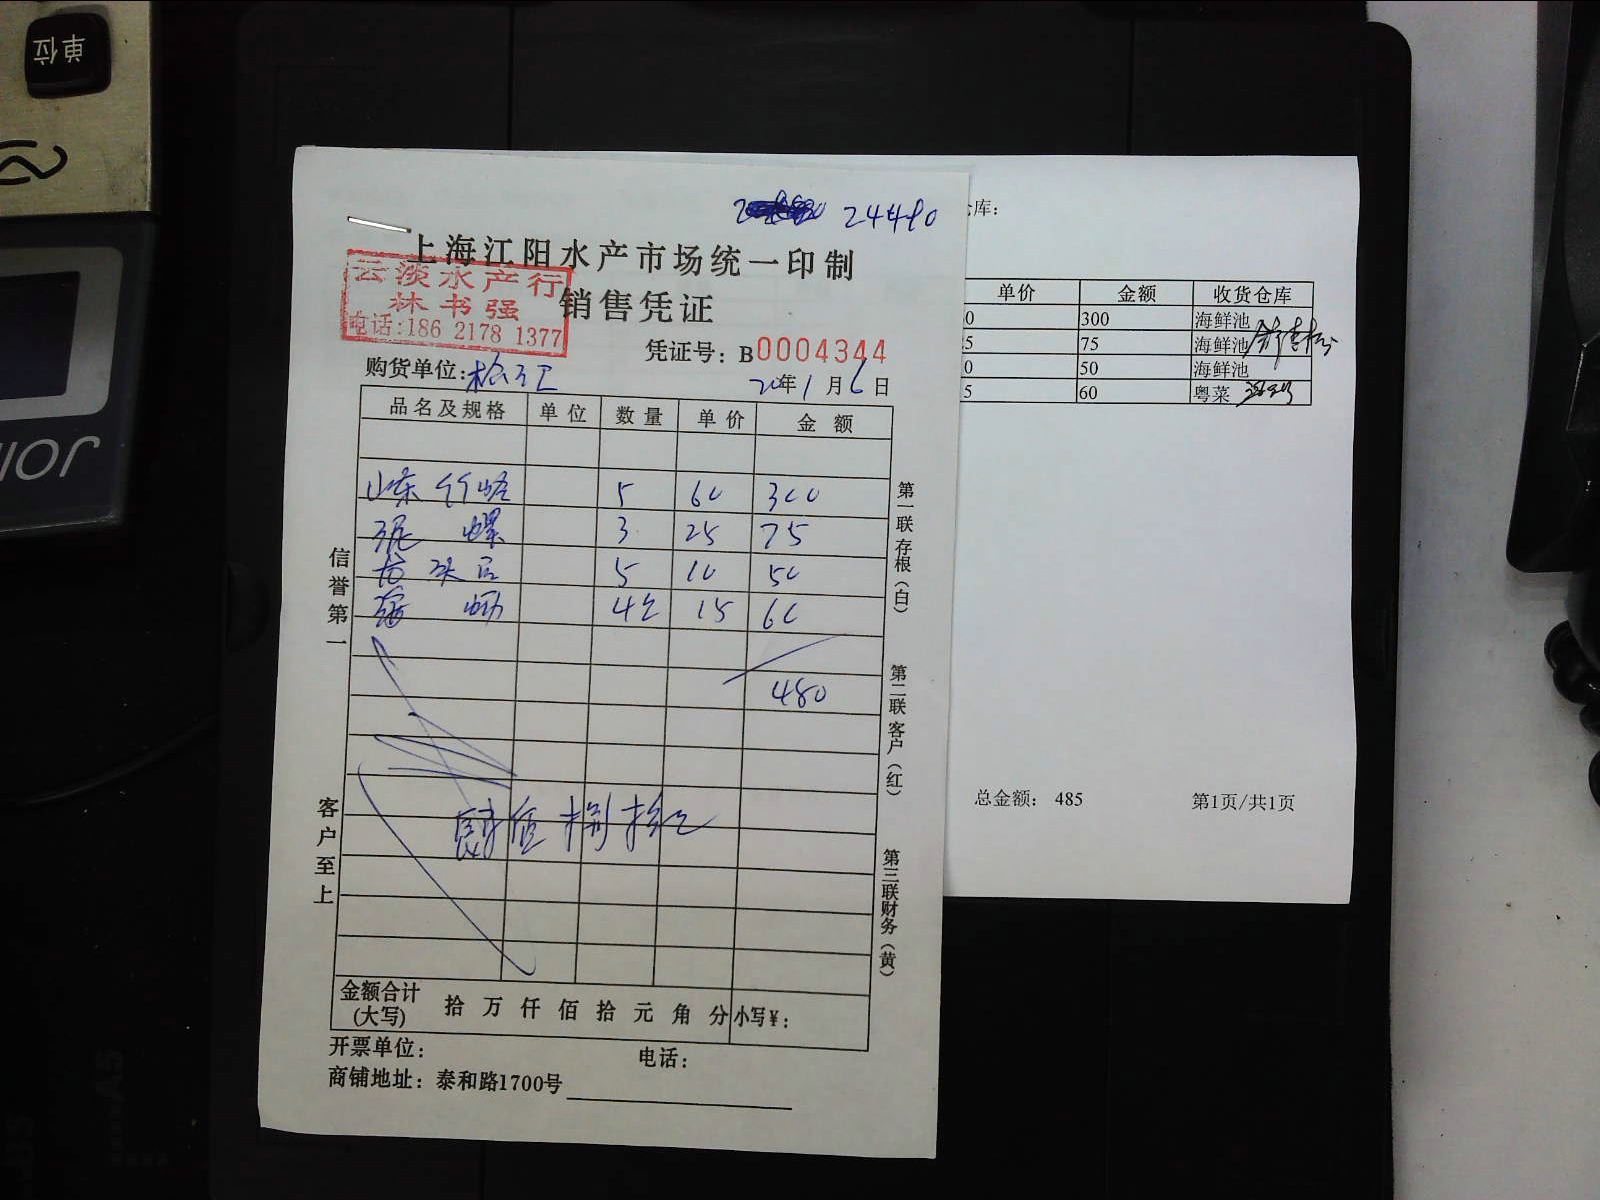 单位
24490
上海江阳水产市场统一印制
云淡水产行
林书强
电话:186 2178 1377
销售凭证
凭证号: B0004344
购货单位:
20年1月6日
品名及规格 单位 数量 单价 金额
山东 5 60 300
泥螺 3 25 75
5 10 50
4 15 60
480
肆佰捌拾元
金额合计(大写) 拾 万 仟 佰 拾 元 角 分 小写¥:
开票单位: 电话:
商铺地址: 泰和路1700号
信誉第一
客户至上
第一联存根(白)
第二联客户(红)
第三联财务(黄)
库:
单价 金额 收货仓库
0 300 海鲜池
5 75 海鲜池
0 50 海鲜池
5 60 粤菜
总金额: 485 第1页/共1页
A5